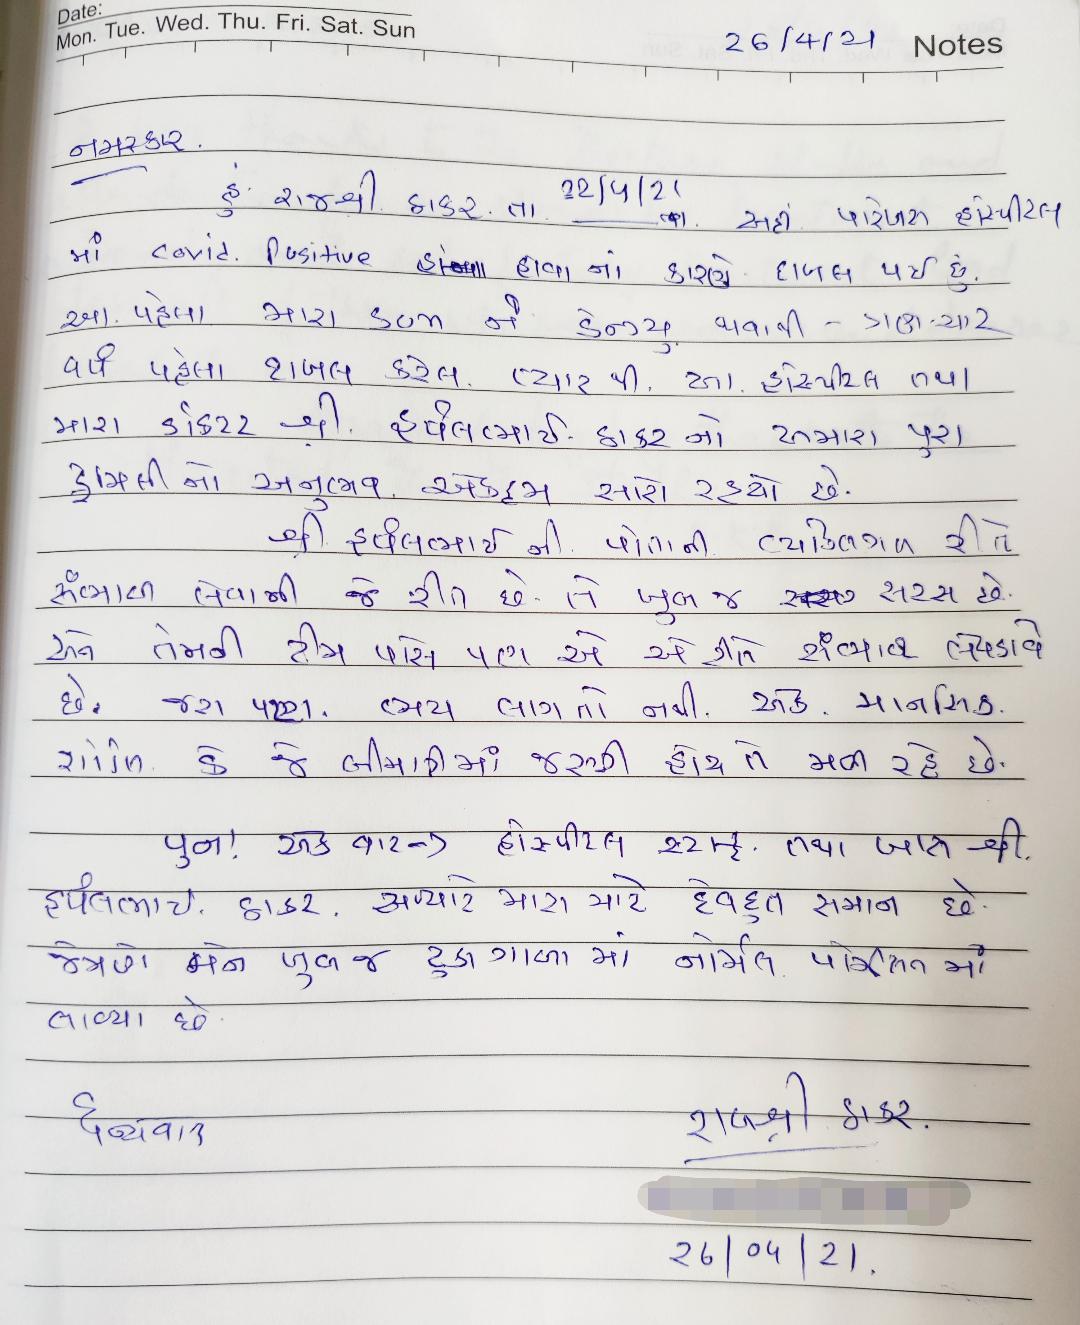 Date:
Mon. Tue. Wed. Thu. Fri. Sat. Sun
26/4/21 Notes
નમસ્કાર.
હું. રાજશ્રી ઠાકર. તા. 22/4/21 ના. અહીં પારેખસ હોસ્પીટલ
માં Covid. Positive હોવાનાં કારણે દાખલ થઈ છું.
આ. પહેલા મારા son ને ડેન્ગ્યુ થવાથી - ત્રણ-ચાર
વર્ષ પહેલા દાખલ કરેલ. ત્યાર થી. આ. હોસ્પીટલ તથા
મારા ડૉકટર શ્રી. હર્ષલભાઈ. ઠાકર નો અમારા પુરા
ફેમિલી નો અનુભવ. એકદમ સારો રહ્યો છે.
શ્રી હર્ષલભાઈ ની. પોતાની વ્યક્તિગત રીતે
સંભાળ લેવાની જે રીત છે. તે ખુબ જ સરસ છે.
અને તેમની ટીમ પાસે પણ એ એ રીતે સંભાળ લેવડાવે
છે. જરા પણ. ભય લાગતો નથી. એક. માનસિક.
શાંતિ. કે જે બીમારીમાં જરૂરી હોય તે મળી રહે છે.
પુન: એક વાર હોસ્પીટલ સ્ટાફ. તથા ખાસ શ્રી.
હર્ષલભાઈ. ઠાકર. અત્યારે મારા માટે દેવદુત સમાન છે.
જેમણે મને ખુબ જ ટુકા ગાળા માં નોર્મલ. પોઝીશન માં
લાવ્યા છે.
ધન્યવાદ
રાજશ્રી ઠાકર.
26/04/21.